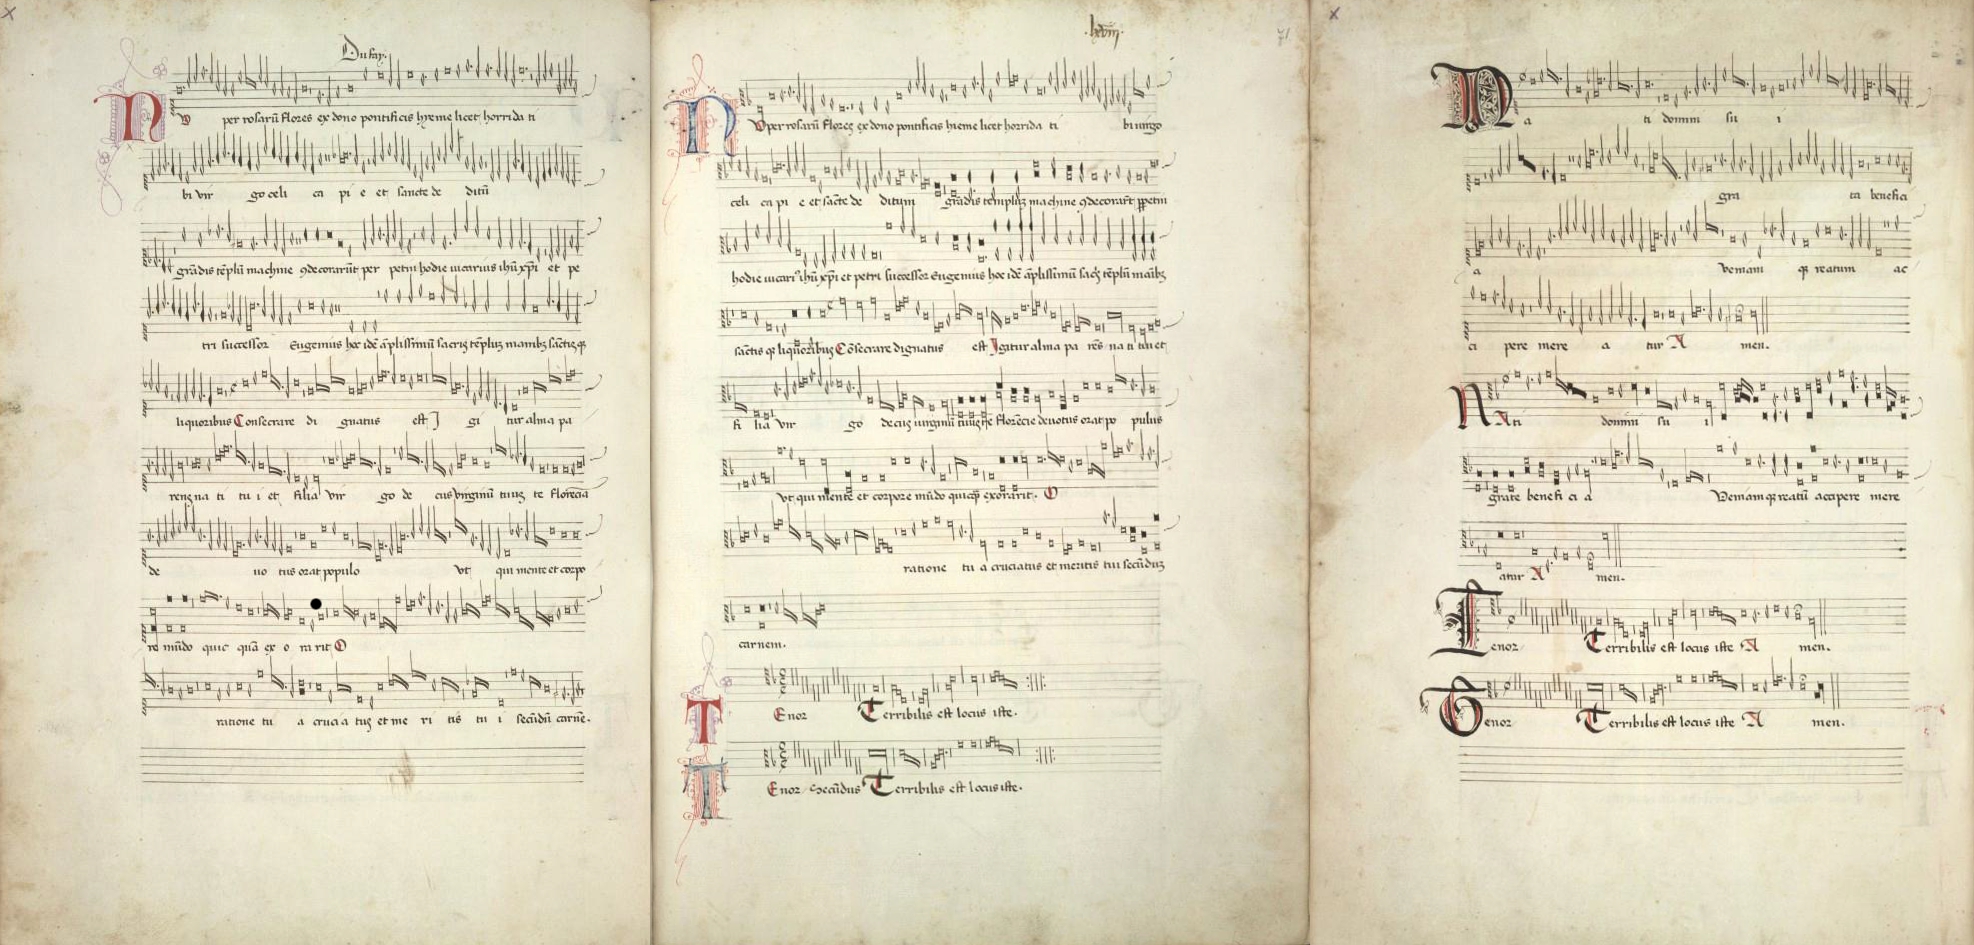 Dufay.
N
per rosarū flores ex dono pontificis hyeme licet horrida ti
bi vir go celi ca pi e et sancte de ditū
grādis tēplū machine ɔdecorarūt per petui hodie vicarius ihū xp̄i et pe
tri successor Eugenius hoc idē āplissimū sacris tēplū manibꝫ sāctisqꝫ
liquoribus Consecrare di gnatus est I gi tur alma pa
rens na ti tui et filia vir go de cus virginū tuus te florēcia
de uo tus orat populo vt qui mente et corpo
re mūdo quic quā ex o ra rit O
ratione tu a crucia tus et me ri tis tu i secūdū carnē.
lxviij
71
N
uper rosarū flores ex dono pontificis hieme licet horrida ti bi uirgo
celi ca pi e et sācte de ditum grādis templum machine ɔdecorarūt ꝑpetui
hodie uicariꝰ ihū xp̄i et petri successor Eugenius hoc idē āplissimū sacꝫ tēplū māibꝫ
sāctis qꝫ liquoribus Cōsecrare dignatus est Igitur alma pa rēs na ti tui et
fi lia vir go decus uirginū tuus te florēcie deuotus orat po pulus
Vt qui mente et corpore mūdo quicqꝫ exorarit. O
ratione tu a cruciatus et meritis tui secūduꝫ
carnem.
T
Enor Terribilis est locus iste.
T
Enor Secūdus Terribilis est locus iste.
N
a ti domini su i
gra ta benefici
a Veniam qꝫ reatum ac
ci pere mere a tur A men.
N
Ati domini su i
grate benefi ci a Veniamqꝫ reatū accipere mere
atur A men.
T
enor Terribilis est locus iste A men.
T
enor Terribilis est locus iste A men.